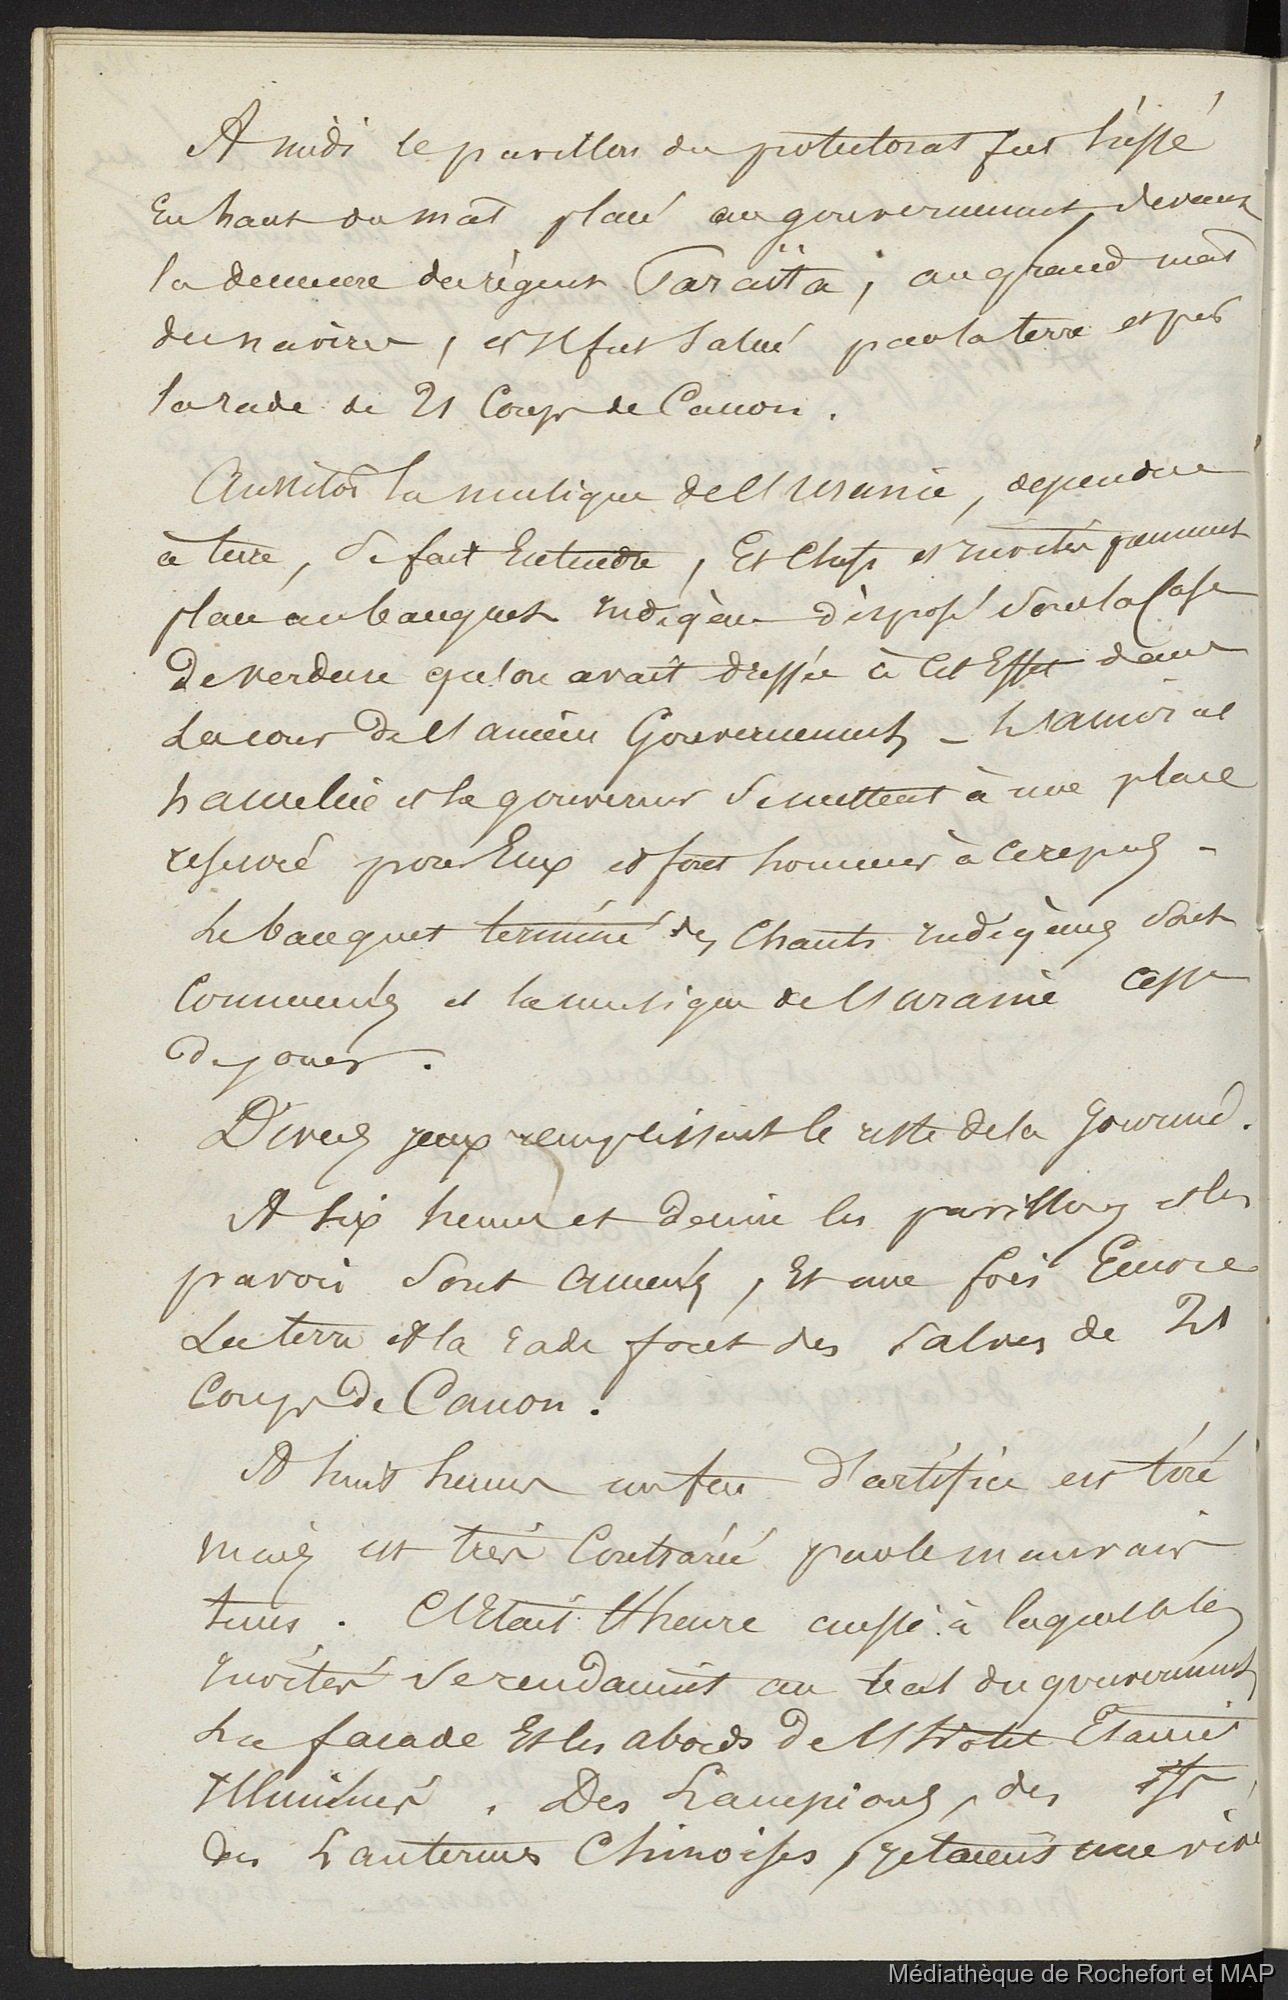 A midi le pavillon du protectorat fut hissé
En haut du mat placé au gouvernement, devant
la demeure du régent Paraïta, au grand mat
du navire, et Il fut Salué par la terre et par
la rade de 21 Coups de Canon.
Aussitôt la musique de l'Uranie, descendue
à terre, Se fait Entendre, Et Chefs et invités prennent
place au banquet indigène disposé Sous la Case
De verdure qu'on avait dressée à Cet Effet dans
La cour De l'ancien Gouvernement _ L'amiral
hamelin et le gouverneur Se mettent à une place
reservée pour Eux et font honneur à ce repas _
Le banquet terminé des Chants indigènes Sont
Commencés et la musique de l'Uranie Cesse
De jouer.
Divers jeux remplissent le reste de la Journée.
A Six heures et demie les pavillons et les
pavois Sont Amenés, Et une fois Encore
La terre et la rade font des Salves de 21
Coups De Canon.
A huit heures un feu d'artifice est tiré
mais est très Contrarié par le mauvais
tems. C'Était l'heure aussi à laquelle les
invités Se rendaient au bal du gouvernement
La façade Et les abords De l'hotel Etaient
Illuminés. Des Lampions, des
des Lanternes Chinoises, jetaient une vive
Médiathèque de Rochefort et MAP